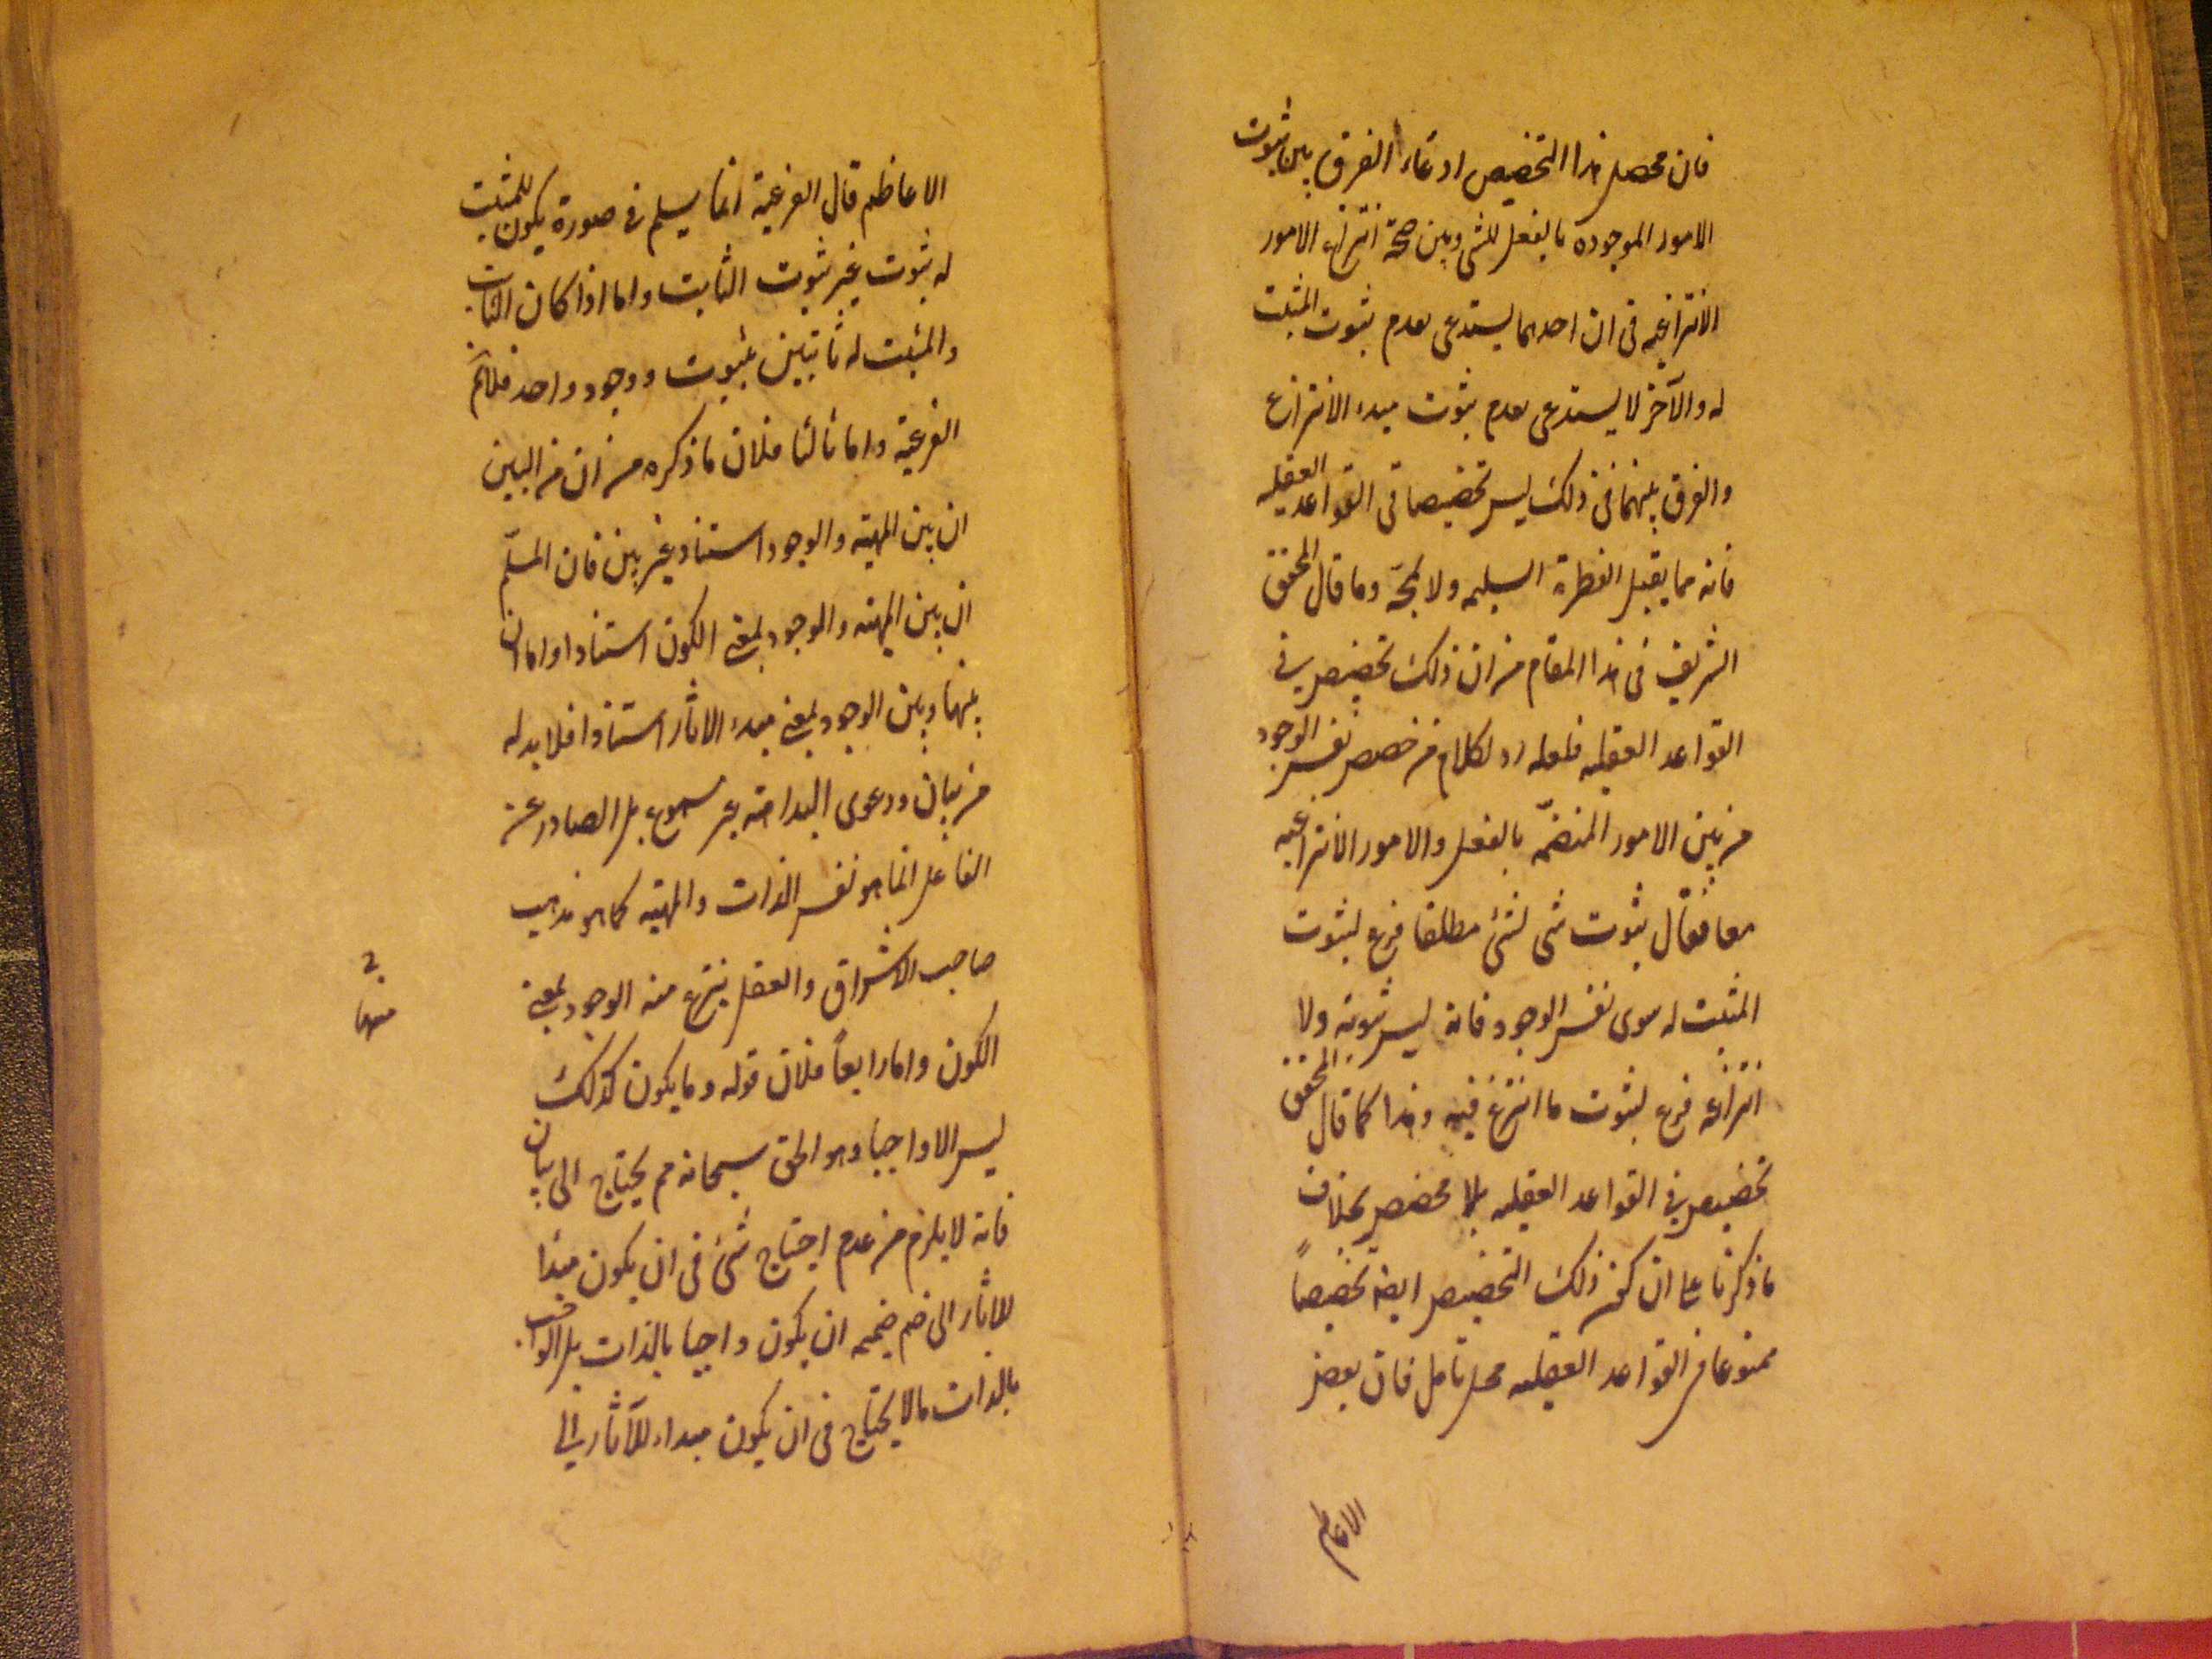 فان محصل هذا التخصيص ادعاء الفرق بين ثبوت
الامور الموجودة بالفعل للشئ وبين صحة انتزاع الامور
الانتزاعيه فى ان احدهما يستدعى تقدم ثبوت المثبت
له والآخر لا يستدعى تقدم ثبوت مبدء الانتزاع
والفرق بينهما فى ذلك ليس تخصيصا فى القواعد العقليه
فانه مما يقبل الفطرة السليمه ولا تمجّه وما قال المحقق
الشريف فى هذا المقام من ان ذلك تخصيص فى
القواعد العقليه فلعله رد لكلام من خصص نفس الوجود
من بين الامور المنضمّه بالفعل والامور الانتزاعيه
معا فقال ثبوت شى لشئ مطلقا فرع لثبوت
المثبت له سوى نفس الوجود فانه ليس ثبوته ولا
انتزاعه فرع لثبوت ما انتزع فيه وهذا كما قال المحقق
تخصيص فى القواعد العقليه بلا مخصص بخلاف
ما ذكرنا على ان كون ذلك التخصيص ايضا تخصيصاً
ممنوعا فى القواعد العقليه محل تامل فان بعض
الاعاظم
الاعاظم قال الفرعية انما يسلم فى صورة يكون للمثبت
له ثبوت غير ثبوت الثابت واما اذا كان الثابت
والمثبت له ثابتين بثبوت ووجود واحد فلا تم
الفرعية واما ثالثا فلان ما ذكره من ان من البين
ان بين المهية والوجود استناد غير بين فان المسلّم
ان بين المهية والوجود بمعنى الكون استنادا واما ان
بينها وبين الوجود بمعنى مبدء الاثار استنادا فلا بد له
من بيان ودعوى البداهته غير مسموع بل الصادر عن
الفاعل انما هو نفس الذات والمهيه كما هو مذهب
صاحب الاشراق والعقل ينتزع منه الوجود بمعنى
الكون واما رابعاً فلان قوله وما يكون كذلك
ليس الا واجبا وهو الحق سبحانه مم يحتاج الى بيان
فانه لا يلزم من عدم احتياج شئ فى ان يكون مبدا
للاثار الى ضم ضميمه ان يكون واجبا بالذات بل الواجب
بالذات مالا يحتاج فى ان يكون مبداء للآثار الى